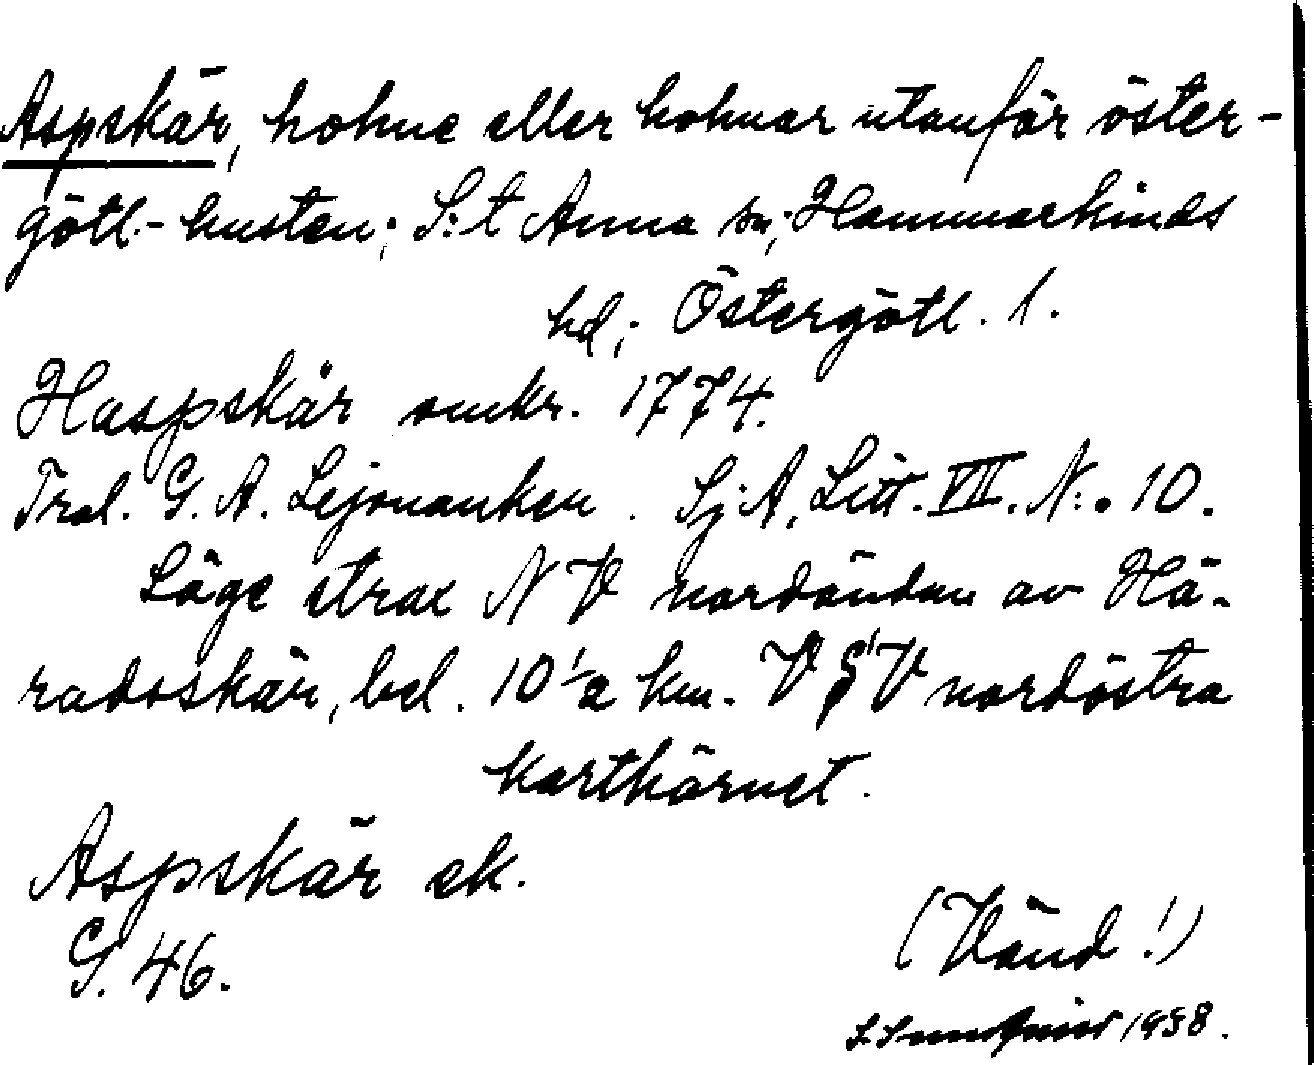 Aspskär, holme eller holmar utanför öster-
götl.-kusten; S:t Anna sn; Hammarkinds
hd; Östergötl. l.
Haspskår omkr. 1774.
Tral. G. A. Lejonanken. Sj A, Litt. VII. N:o 10.
Läge strax NV nordändan av Hä-
radsskär, bel. 10 1/2 km. V S'V nordöstra
karthörnet.
Aspskär ek.
G. 46.
(Vänd!)
1938.